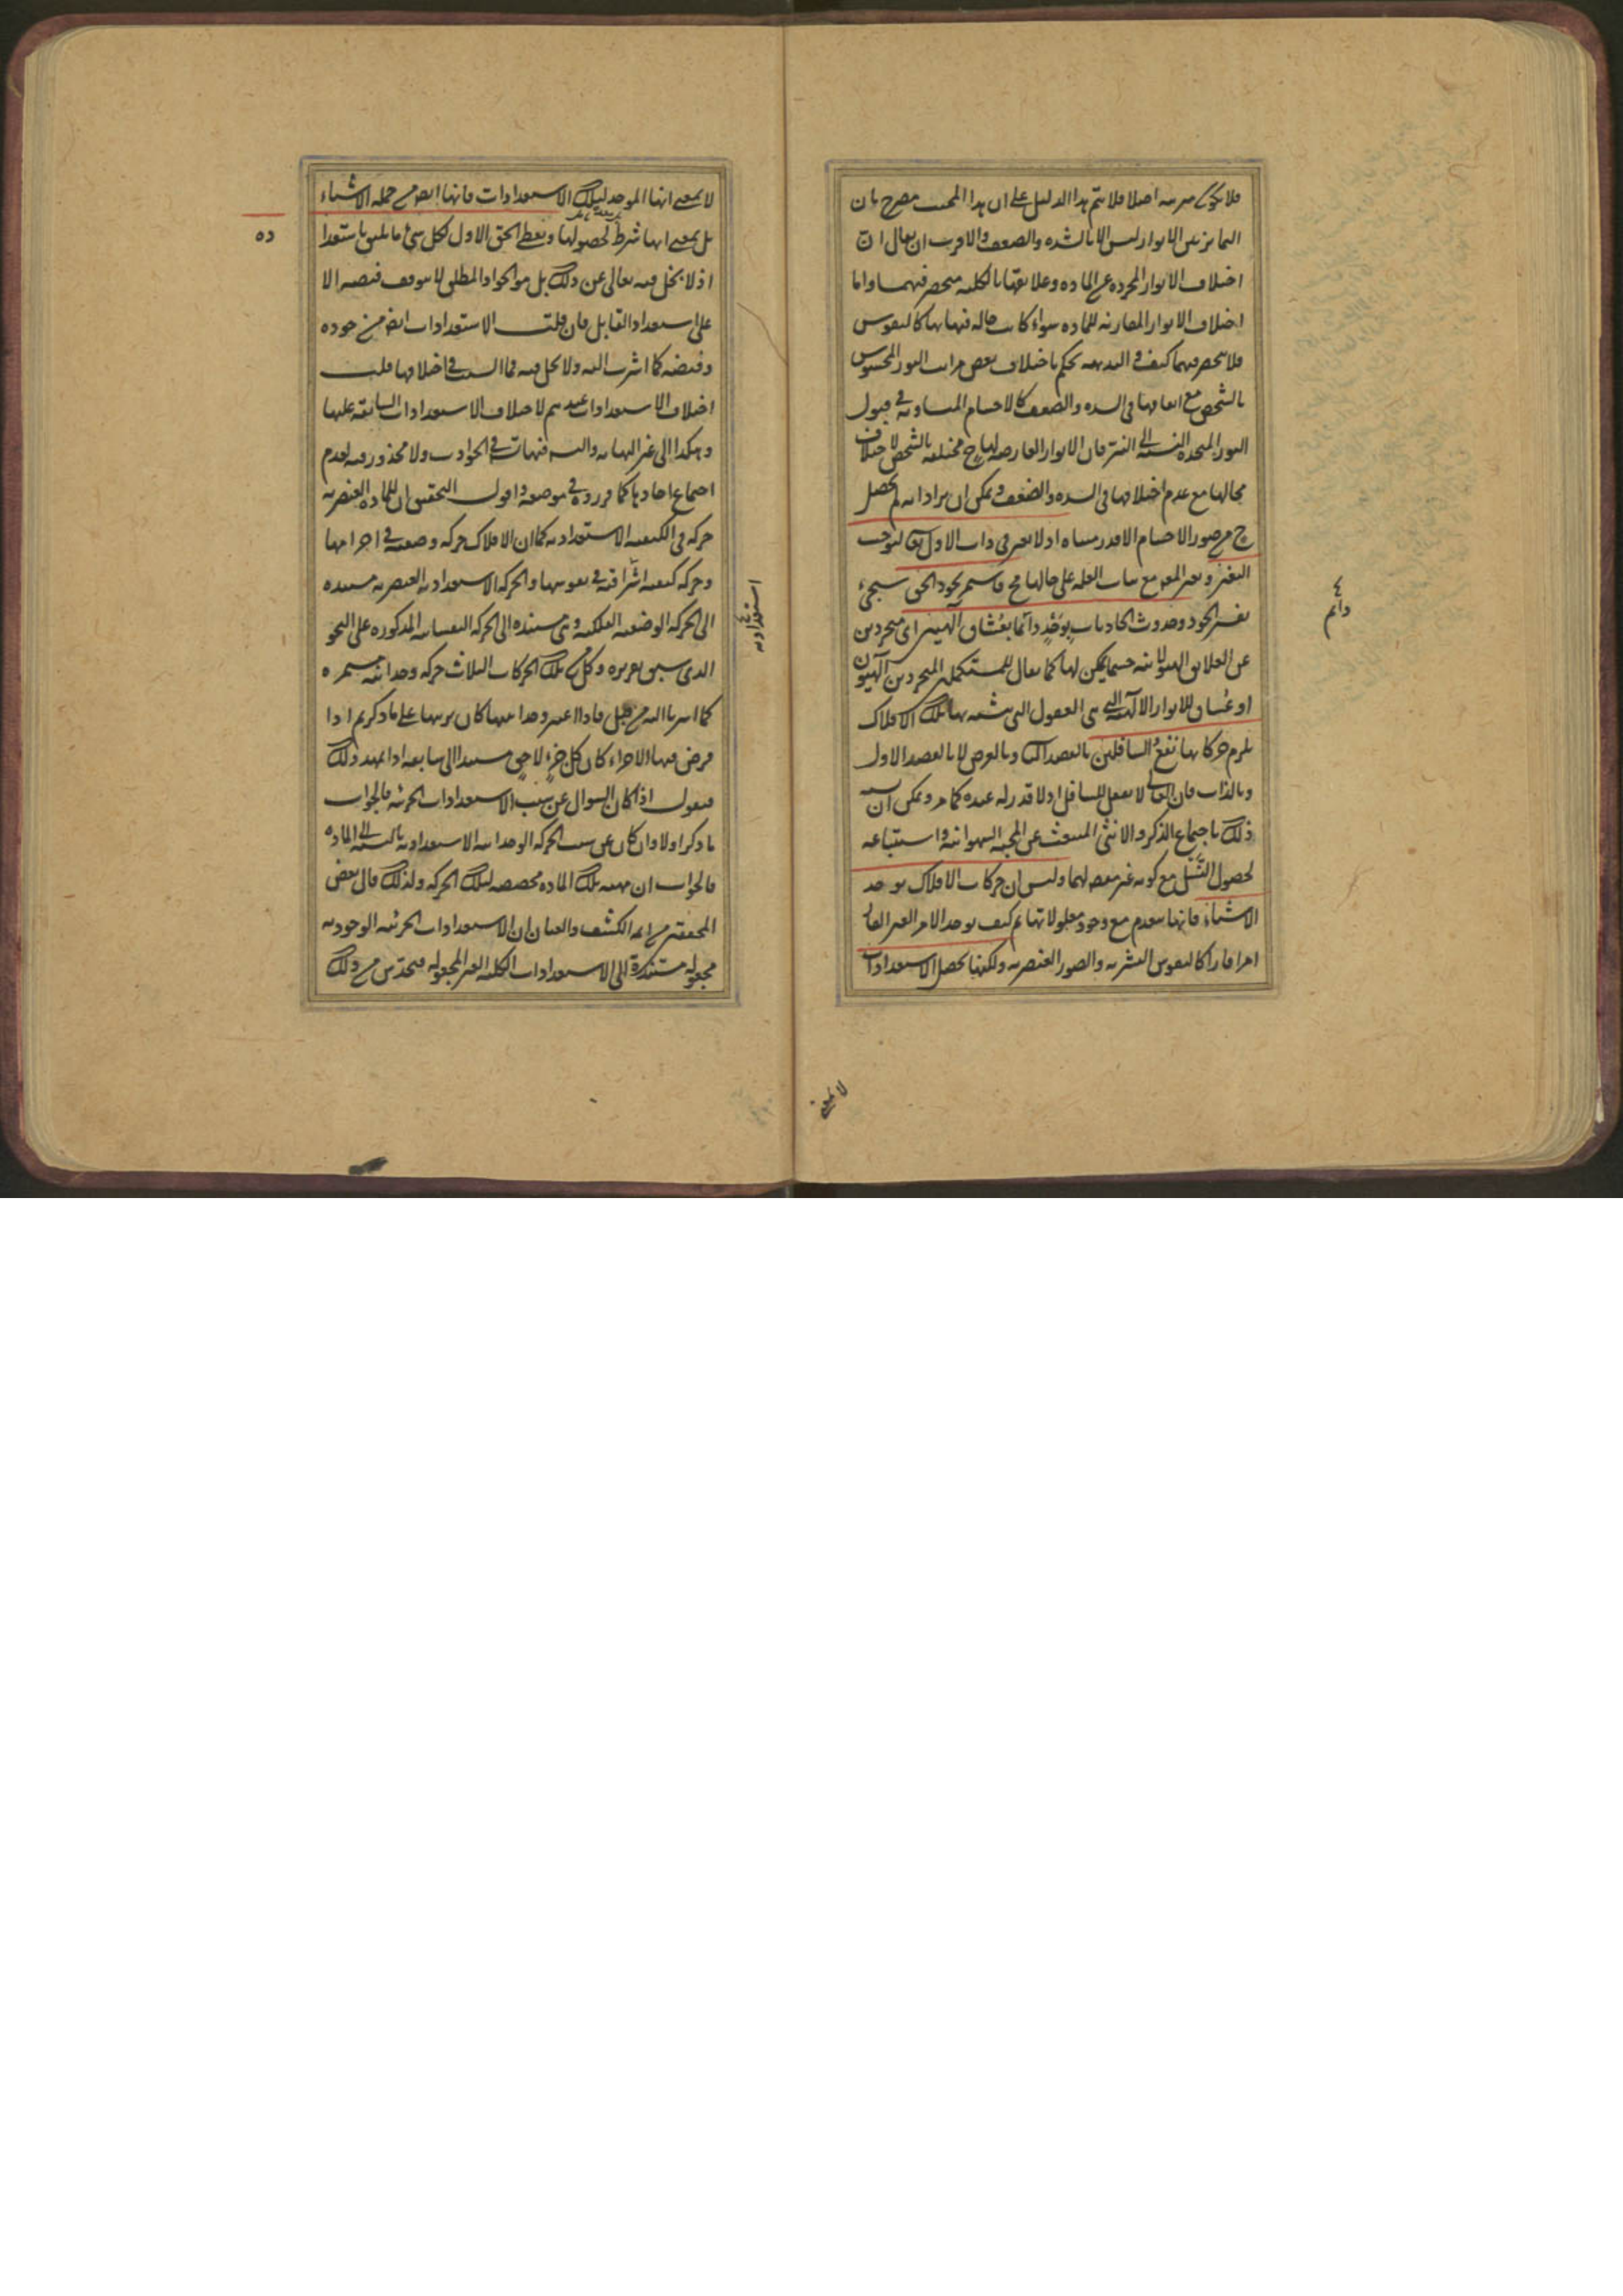 فلا يكون مرتبه اصلا فلا يتم هذا الدليل على ان هذا المبحث مصرح بان
التمايز بين الانوار ليس الا بالشده والضعف والاقرب ان يقال ان
اختلاف الانوار المجرده عن الماده وعلايقها بالكليه منحصر فيهما واما
اختلاف الانوار المقارنه للماده سواء كانت حاله فيها بها كالنفوس
فلا ينحصر فيهما كيف والبديهه تحكم باختلاف بعض مراتب النور المحسوس
بالشخص مع اتفاقها فى الشده والضعف كالاجسام المتساويه فى قبول
النور المتحده النسبه الى النير فان الانوار العارضه لها ح مختلفه بالشخص لاختلاف
محالها مع عدم اختلافها فى الشده والضعف ويمكن ان يراد انه لم يحصل
ح من صور الاجسام الا قدر متناه اذ لا تغير فى ذات الاول تعالى ليوجب
التغير وتغير المعلول مع ثبات العله على حالها مح فاستمر بجود الحق سيجىء
تفسير الجود وحدوث الحادثات بوجد دائما بعشاق آلهيين اى متجردين
عن العلايق الهيولانيه حسبما يمكن لها كما يقال للمستكملين المتجردين آلهيون
او عشاق للانوار الالهيه التى هى العقول التى يتشبه بها تلك الافلاك
يلزم حركاتها نفع السافلين بالقصد الثانى وبالعرض لا بالقصد الاول
وبالذات فان العالى لا يفعل للسافل اذ لا قدر له عنده كما مر ويمكن ان يشبه
ذلك باجتماع الذكر والانثى المنبعث عن المحبه الشهوانيه واستتباعه
لحصول النسل مع كونه غير مقصود لهما وليس ان حركات الافلاك توجد
الاشياء فانها تنعدم مع وجود معلولاتها ثم كيف يوجد الامر الغير القار
امرا قارا كالنفوس البشريه والصور العنصريه ولكنها تحصل الاستعدادات
دائم
لا بمعنى
لا بمعنى انها الموجد لتلك الاستعدادات فانها ايضا من جمله الاشياء
بل بمعنى انها شرط لحصولها ويعطى الحق الاول لكل شىء ما يليق باستعدا
ده
اذ لا بخل فيه تعالى عن ذلك بل هو الجواد المطلق لا يتوقف فيضه الا
على استعداد القابل فان قلت الاستعدادات ايضا من جوده
وفيضه كما اشرت اليه ولا بخل فيه فما السبب فى اختلافها قلت
اختلاف الاستعدادات عندهم لاختلاف الاستعدادات السابقه عليها
وهكذا الى غير النهايه والتسلسل فيها فى الحوادث ولا محذور فيه لعدم
اجتماع احادها كما قرروه فى موضعه واقول التحقيق ان للماده العنصريه
حركه فى الكيفيه الاستعداديه كما ان الافلاك حركه وضعيه فى اجرامها
وحركه كيفيه اشراقيه فى نفوسها والحركه الاستعداديه العنصريه مستنده
استعداديه
الى الحركه الوضعيه الفلكيه وهى مستنده الى الحركه النفسانيه المذكوره على النحو
الذى سبق تقريره وكل من تلك الحركات الثلاث حركه وحدانيه مستمره
كما اشرنا اليه من قبل فاذا اعتبر وحدانيتها كان ترتبها على ما ذكر ثم اذا
فرض فيها الاجزاء كان كل جزء لاحق مستندا الى سابقه اذا تمهد ذلك
فنقول اذا كان السؤال عن سبب الاستعدادات الجزئيه فالجواب
ما ذكر اولا وان كان عن سبب الحركه الوحدانيه الاستعداديه بالنسبه الى الماده
فالجواب ان مهيه تلك الماده مخصصه لتلك الحركه ولذلك قال بعض
المحققين من ائمه الكشف والعيان ان الاستعدادات الجزئيه الوجوديه
مجعوله مستنده الى الاستعدادات الكليه الغير المجعوله فتحدس من ذلك